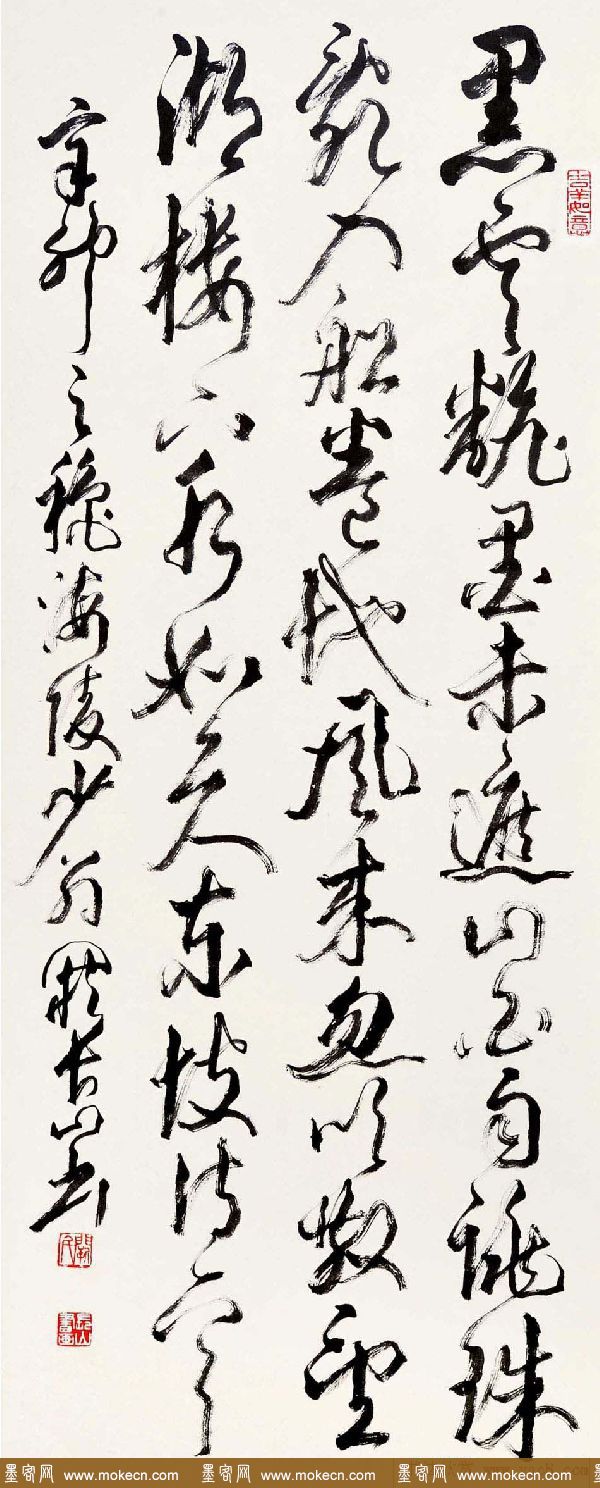 吉羊如意
黑云翻墨未遮山白雨跳珠
亂入船卷地風来忽吹散望
湖楼下水如天东坡诗一首
辛卯之龝海陵少翁阚长山书
墨客网 www.mokecn.com 墨客网 www.mokecn.com 墨客网 www.mokecn.com